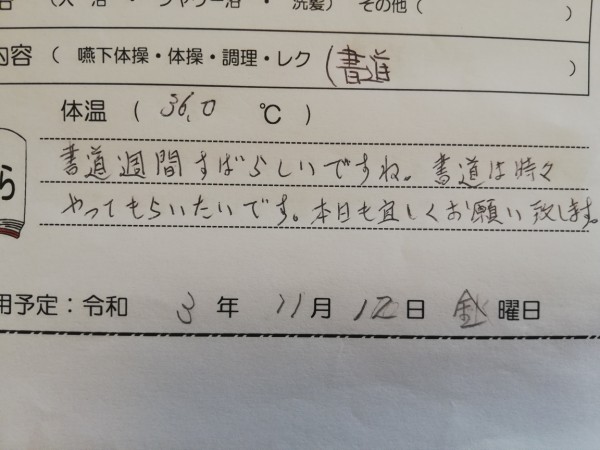 (入 浴 ・ シャワー浴 ・ 洗髪) その他 ( )
内容 ( 嚥下体操・体操・調理・レク (書道 )
体温 ( 36.0 ℃ )
書道週間すばらしいですね。書道は時々
ら
やってもらいたいです。本日も宜しくお願い致します。
用予定：令和 3 年 11月 12日 金曜日